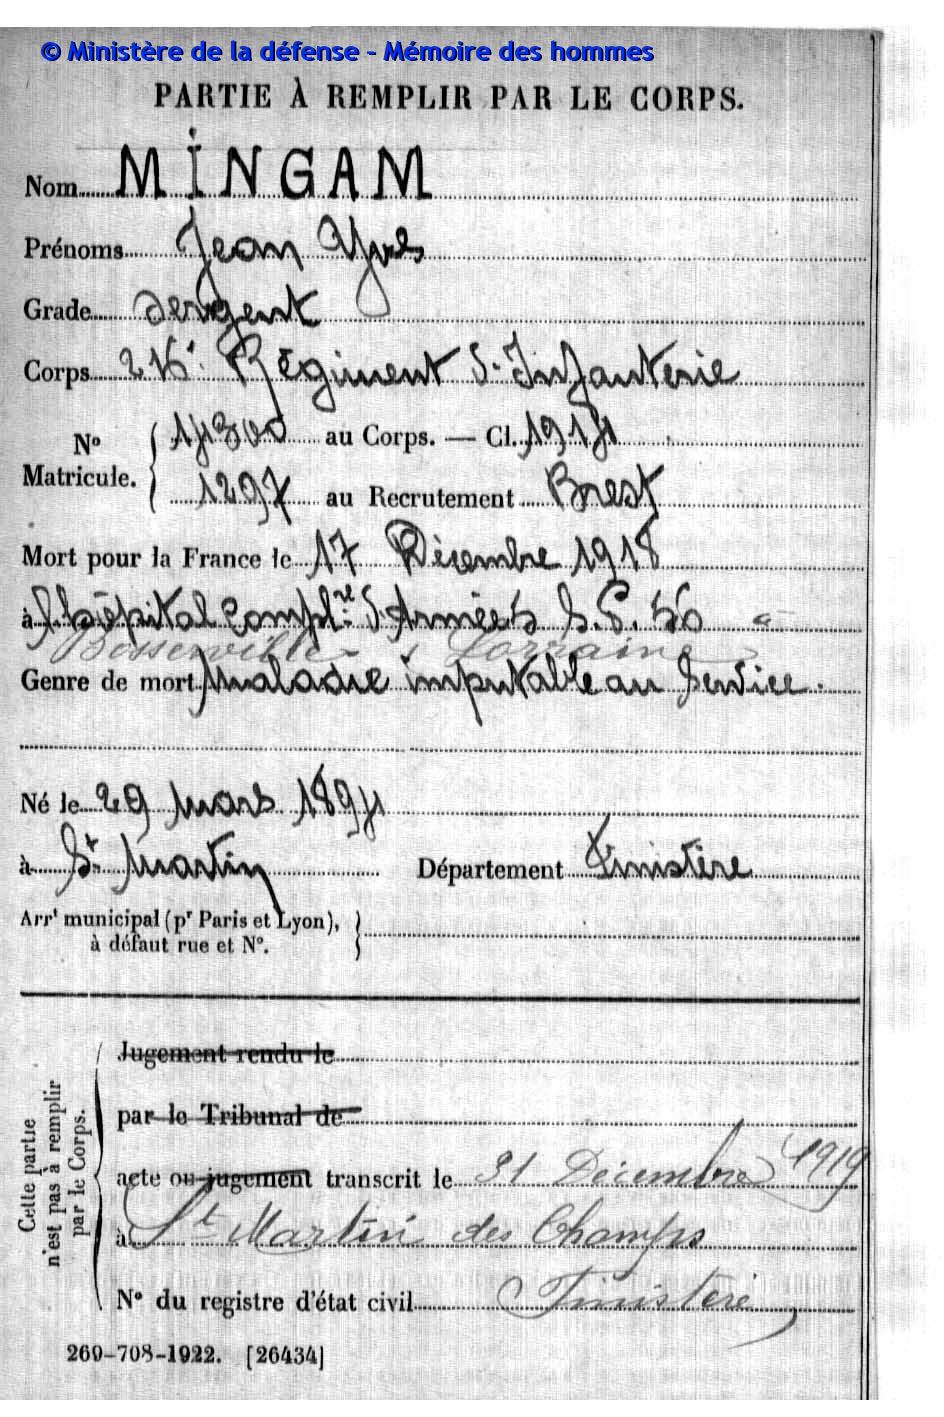 © Ministère de la défense - Mémoire des hommes
PARTIE À REMPLIR PAR LE CORPS.
Nom MINGAM
Prénoms Jean Yves
Grade Sergent
Corps 216e Régiment d'Infanterie
N° Matricule. 14300 au Corps. — Cl. 1914
1297 au Recrutement Brest
Mort pour la France le 17 Décembre 1918
à l'hôpital complre d'Armées S.P. 56 à
Bosserville Lorraine
Genre de mort Maladie imputable au Service.
Né le 29 Mars 1894
à St Martin Département Finistère
Arrt municipal (pr Paris et Lyon),
à défaut rue et N°.
Cette partie n'est pas à remplir par le Corps.
Jugement rendu le
par le Tribunal de
acte ou jugement transcrit le 31 Décembre 1919
à St Martin des Champs
N° du registre d'état civil Finistère
269-708-1922. [26434]